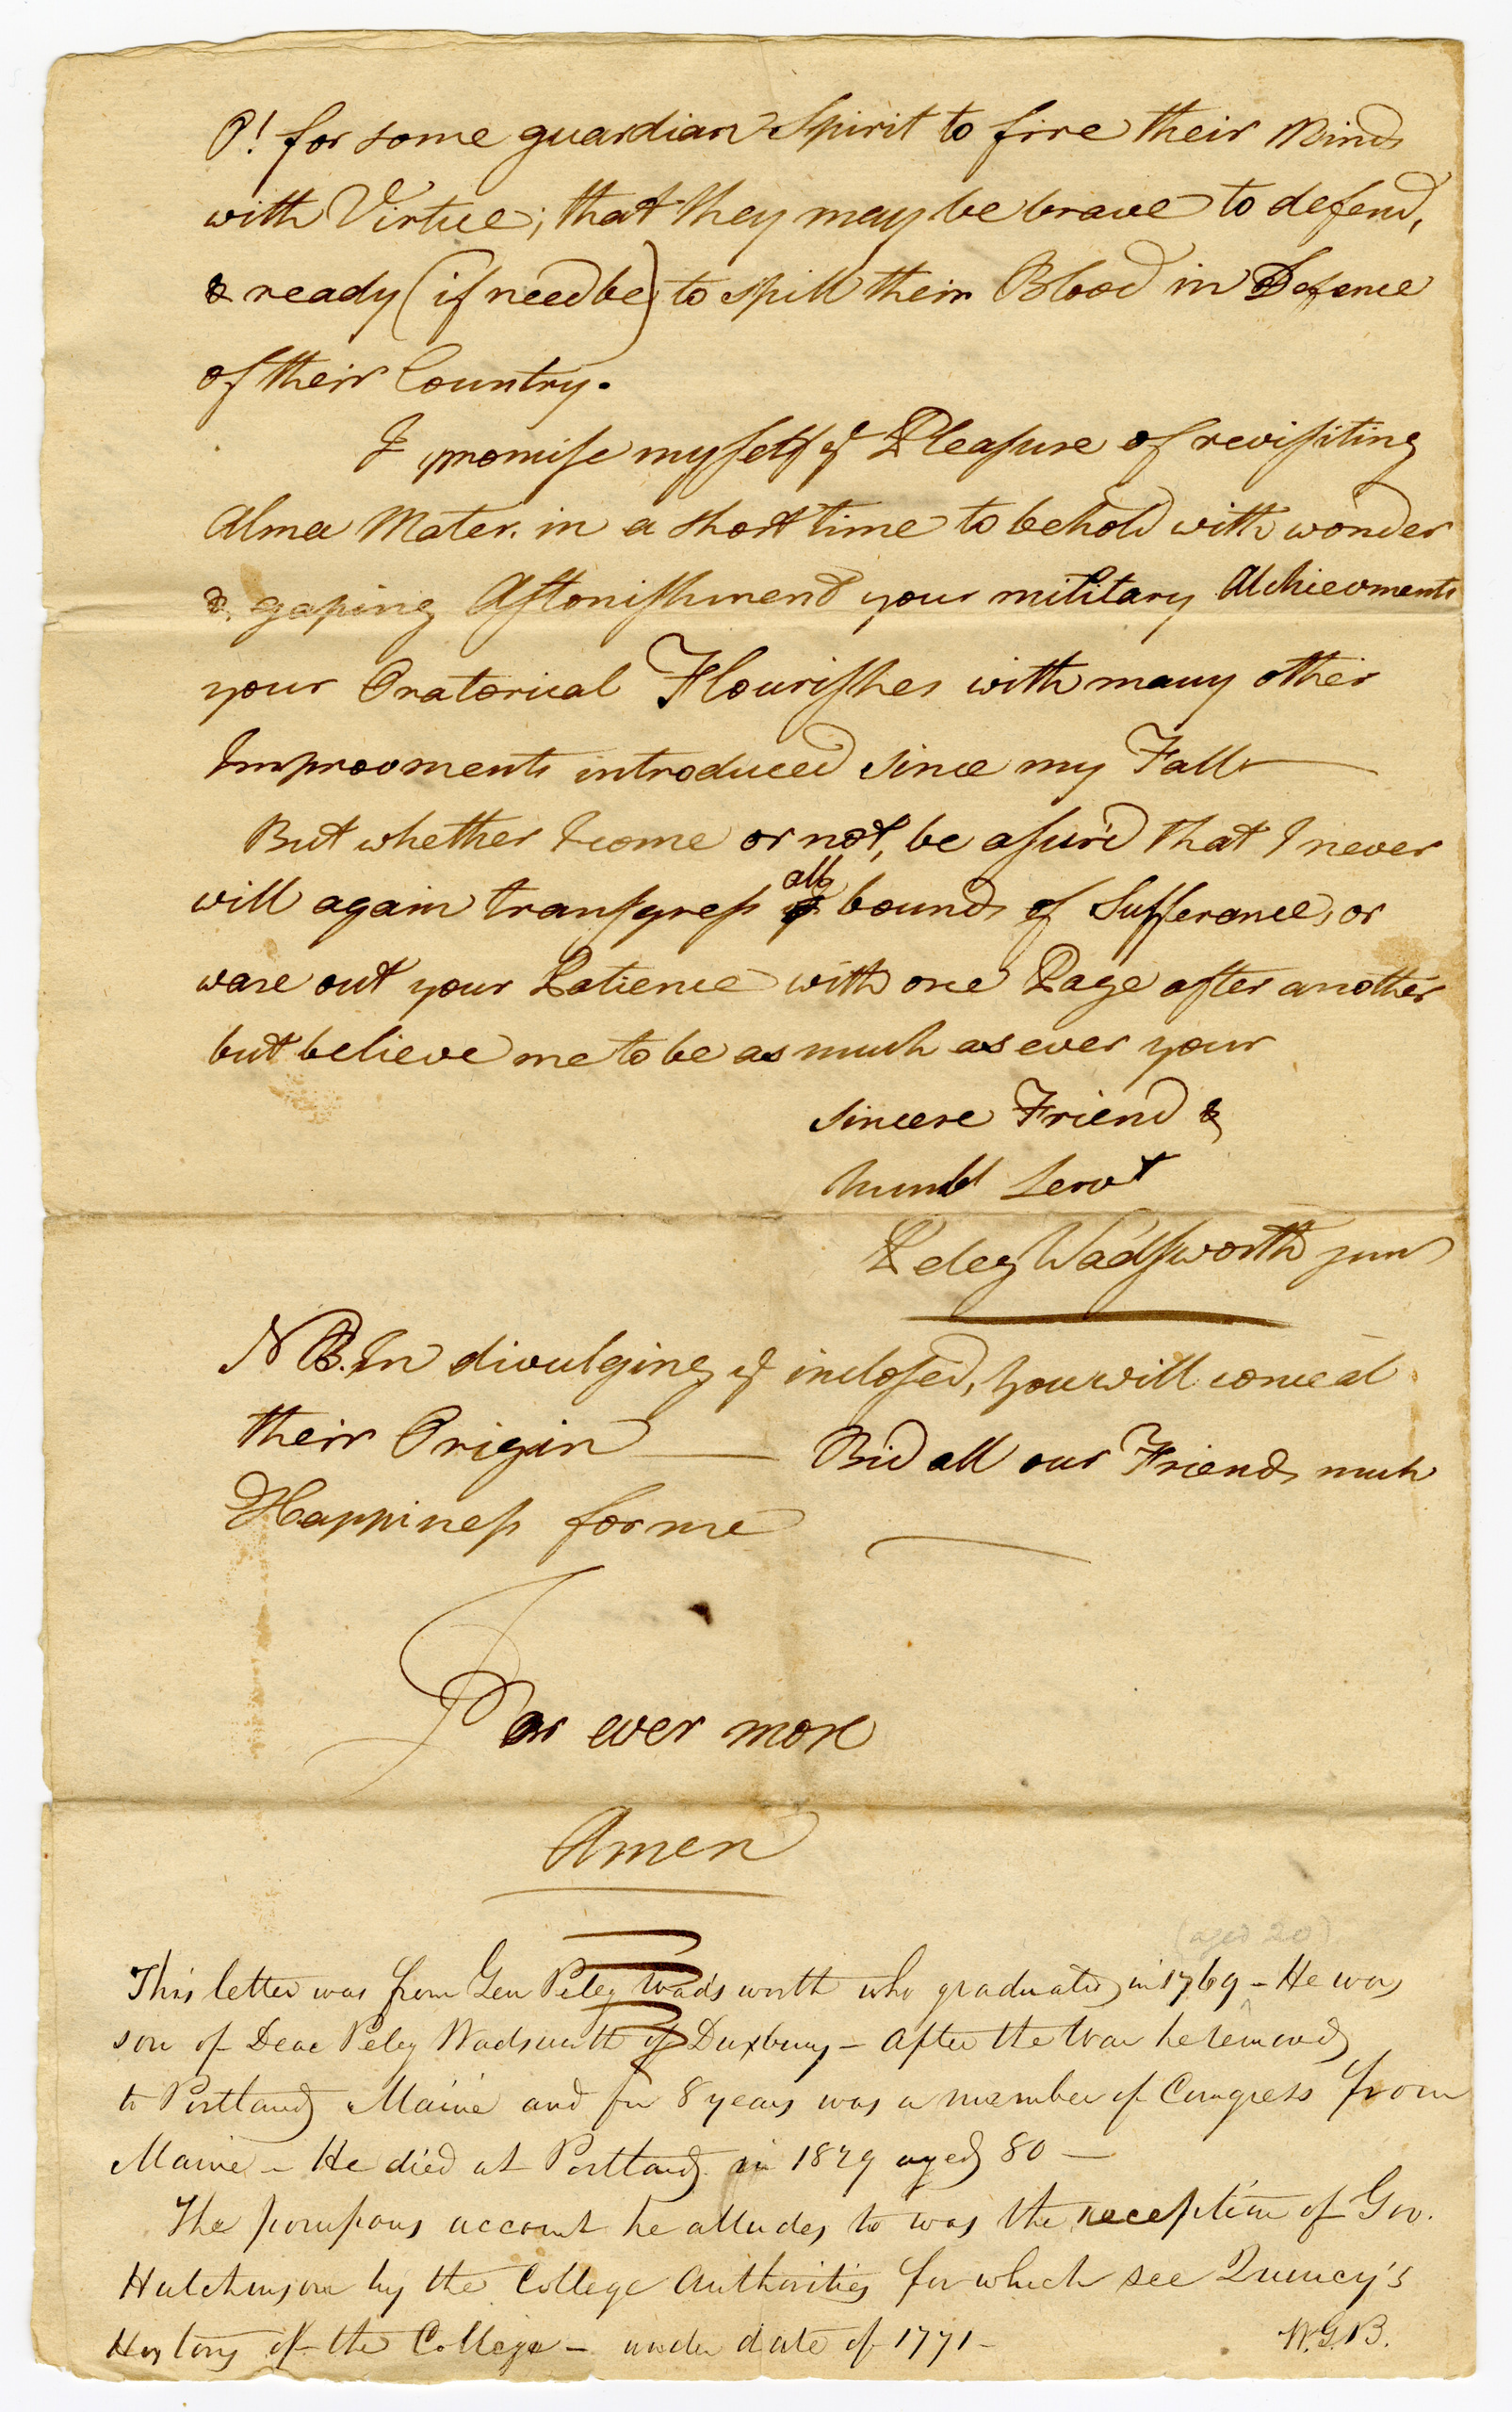 O! for some guardian Spirit to fire their Minds
with Virtue; that they may be brave to defend,
& ready (if need be) to spill their Blood in Defence
of their Country.
I promise myself ye Pleasure of revisiting
Alma Mater. in a short time to behold with wonder
& gaping Astonishment your military Atchievments
your Oratorical Flourishes with many other
Improovments introduced since my Fall—
But whether I come or not, be asur'd that I never
all
will again transgress bounds of Sufferance, or
ware out your Patience with one Page after another
but believe me to be as much as ever your
sincere Friend &
humbl Servt
Peleg Wadsworth junr
NB. In divulging ye inclosed, you will conceal
their Origin — Bid all our Friends much
Happiness for me —
For ever more
Amen
(aged 20)
This letter was from Gen Peleg Wadsworth who graduated in 1769 ^ - He was
son of Deac Peleg Wadsworth of Duxbury - After the War he removed
to Portland Maine and for 8 years was a member of Congress from
Maine - He died at Portland in 1829 aged 80 —
The pompous account he alludes to was the reception of Gov.
Hutchinson by the College Authorities for which see Quincy's
History of the College - under date of 1771 - W.G.B.